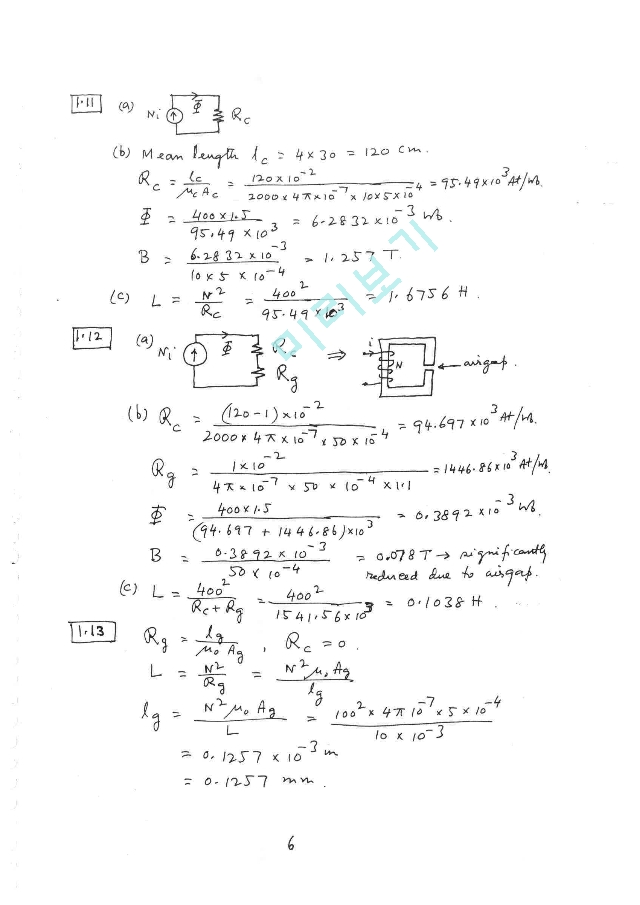 1.11 (a) Ni Φ Rc
(b) Mean length lc = 4 x 30 = 120 cm.
Rc = lc / μc Ac = 120 x 10^-2 / 2000 x 4π x 10^-7 x 10 x 5 x 10^-4 = 95.49 x 10^3 At/wb.
Φ = 400 x 1.5 / 95.49 x 10^3 = 6.2832 x 10^-3 wb.
B = 6.2832 x 10^-3 / 10 x 5 x 10^-4 = 1.257 T.
(c) L = N^2 / Rc = 400^2 / 95.49 x 10^3 = 1.6756 H.
미리보기
1.12 (a) Ni Φ Rc Rg ⇒ i N ← airgap.
(b) Rc = (120-1) x 10^-2 / 2000 x 4π x 10^-7 x 50 x 10^-4 = 94.697 x 10^3 At/wb.
Rg = 1 x 10^-2 / 4π x 10^-7 x 50 x 10^-4 x 1.1 = 1446.86 x 10^3 At/wb
Φ = 400 x 1.5 / (94.697 + 1446.86) x 10^3 = 0.3892 x 10^-3 wb.
B = 0.3892 x 10^-3 / 50 x 10^-4 = 0.078 T → significantly
reduced due to airgap.
(c) L = 400^2 / Rc + Rg = 400^2 / 1541.56 x 10^3 = 0.1038 H.
1.13 Rg = lg / μo Ag , Rc = 0.
L = N^2 / Rg = N^2 μo Ag / lg
lg = N^2 μo Ag / L = 100^2 x 4π 10^-7 x 5 x 10^-4 / 10 x 10^-3
= 0.1257 x 10^-3 m
= 0.1257 mm.
6